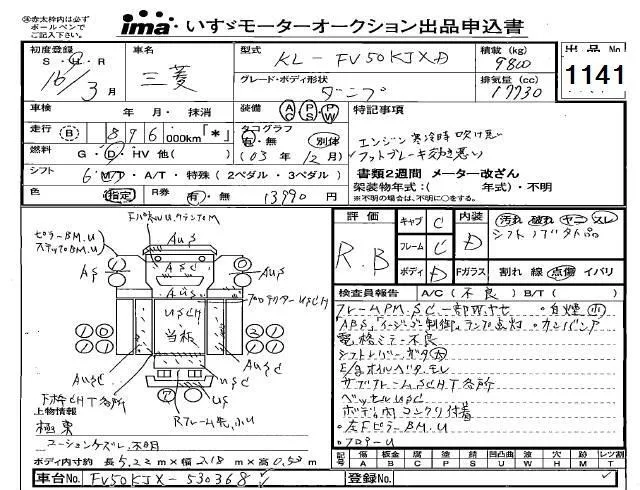 ※赤太枠内は必ずボールペンでご記入下さい。
ima いすゞモーターオークション出品申込書
初度登録 S・H・R 16/3月
車名 三菱
型式 KL-FV50KJXD
積載(kg) 9800
出品No 1141
グレード・ボディ形状 ダンプ
排気量(cc) 17730
車検 年 月・抹消
装備 AC PS PW
特記事項
走行 B 896 000km「*」
タコグラフ 有・無 別体
エンジン寒冷時吹け悪い
燃料 G・D・HV 他( )
(03年12月)
フットブレーキ効き悪い
シフト 6 MT・A/T・特殊(2ペダル・3ペダル)
書類2週間 メーター改ざん
架装物年式:( 年式)・不明
※不明の場合は、不明に○をする。
色 指定 R券 有・無 13990円
評価 R.B
キャブ C
フレーム C
ボディ D
内装 D
汚れ 破れ ヤニ スレ
シフトノブ欠品
Fガラス 割れ 線 点傷 イバリ
検査員報告 A/C(不良) B/T( )
フレームPM.SC
ABS、イージーゴー制御、ランプ点灯
電格ミラー不良
シフトレバーガタ大
E/gオイルベタモレ
サブフレームSCHT各所
ベッセルUSC
ボディ内コンクリ付着
左FピラーBM.U
フロアーU
FパネルU
ピラーBM.U
ステップBM.U
AUS
AS
ASC
AUS
AUS
USCH
当板
AUSC
USC
US
下枠CHT各所
Rフレーム先小U
上物情報
極東
ボディ内寸約 長5.22m×幅2.18m×高0.53m
記号 傷A 板金B 補修C 塗装P サビS 凹凸曲U 波W 穴H ムM レツ割T
車台No. FV50KJX-530368
登録No.